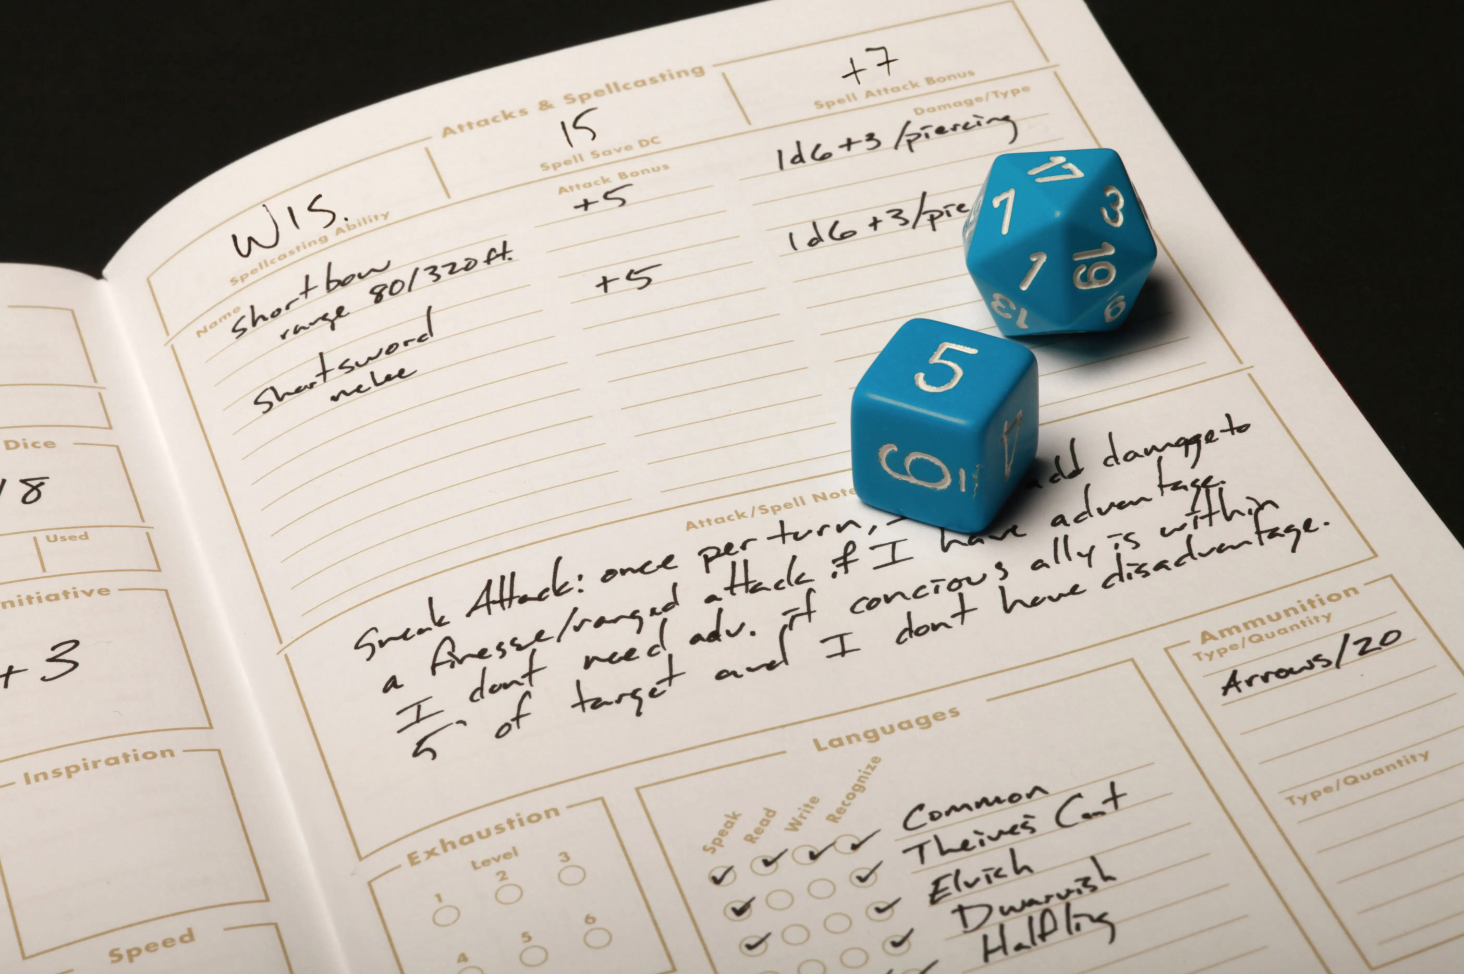 Dice
/8
Used
nitiative
+3
Inspiration
Speed
Attacks & Spellcasting
WIS.
Spellcasting Ability
15
Spell Save DC
+7
Spell Attack Bonus
Name
Attack Bonus
Damage/Type
Shortbow
+5
1d6+3/piercing
range 80/320ft.
Shortsword
+5
1d6+3/pie
melee
17
7
3
1
19
13
9
5
6
4
Attack/Spell Note
Sneak Attack: once per turn, add damage to
a finesse/ranged attack if I have advantage.
I dont need adv. if concious ally is within
5' of target and I dont have disadvantage.
Exhaustion
Level
1
2
3
4
5
6
Languages
Speak
Read
Write
Recognize
Common
Theives Cant
Elvish
Dwarvish
Halfling
Ammunition
Type/Quantity
Arrows/20
Type/Quantity